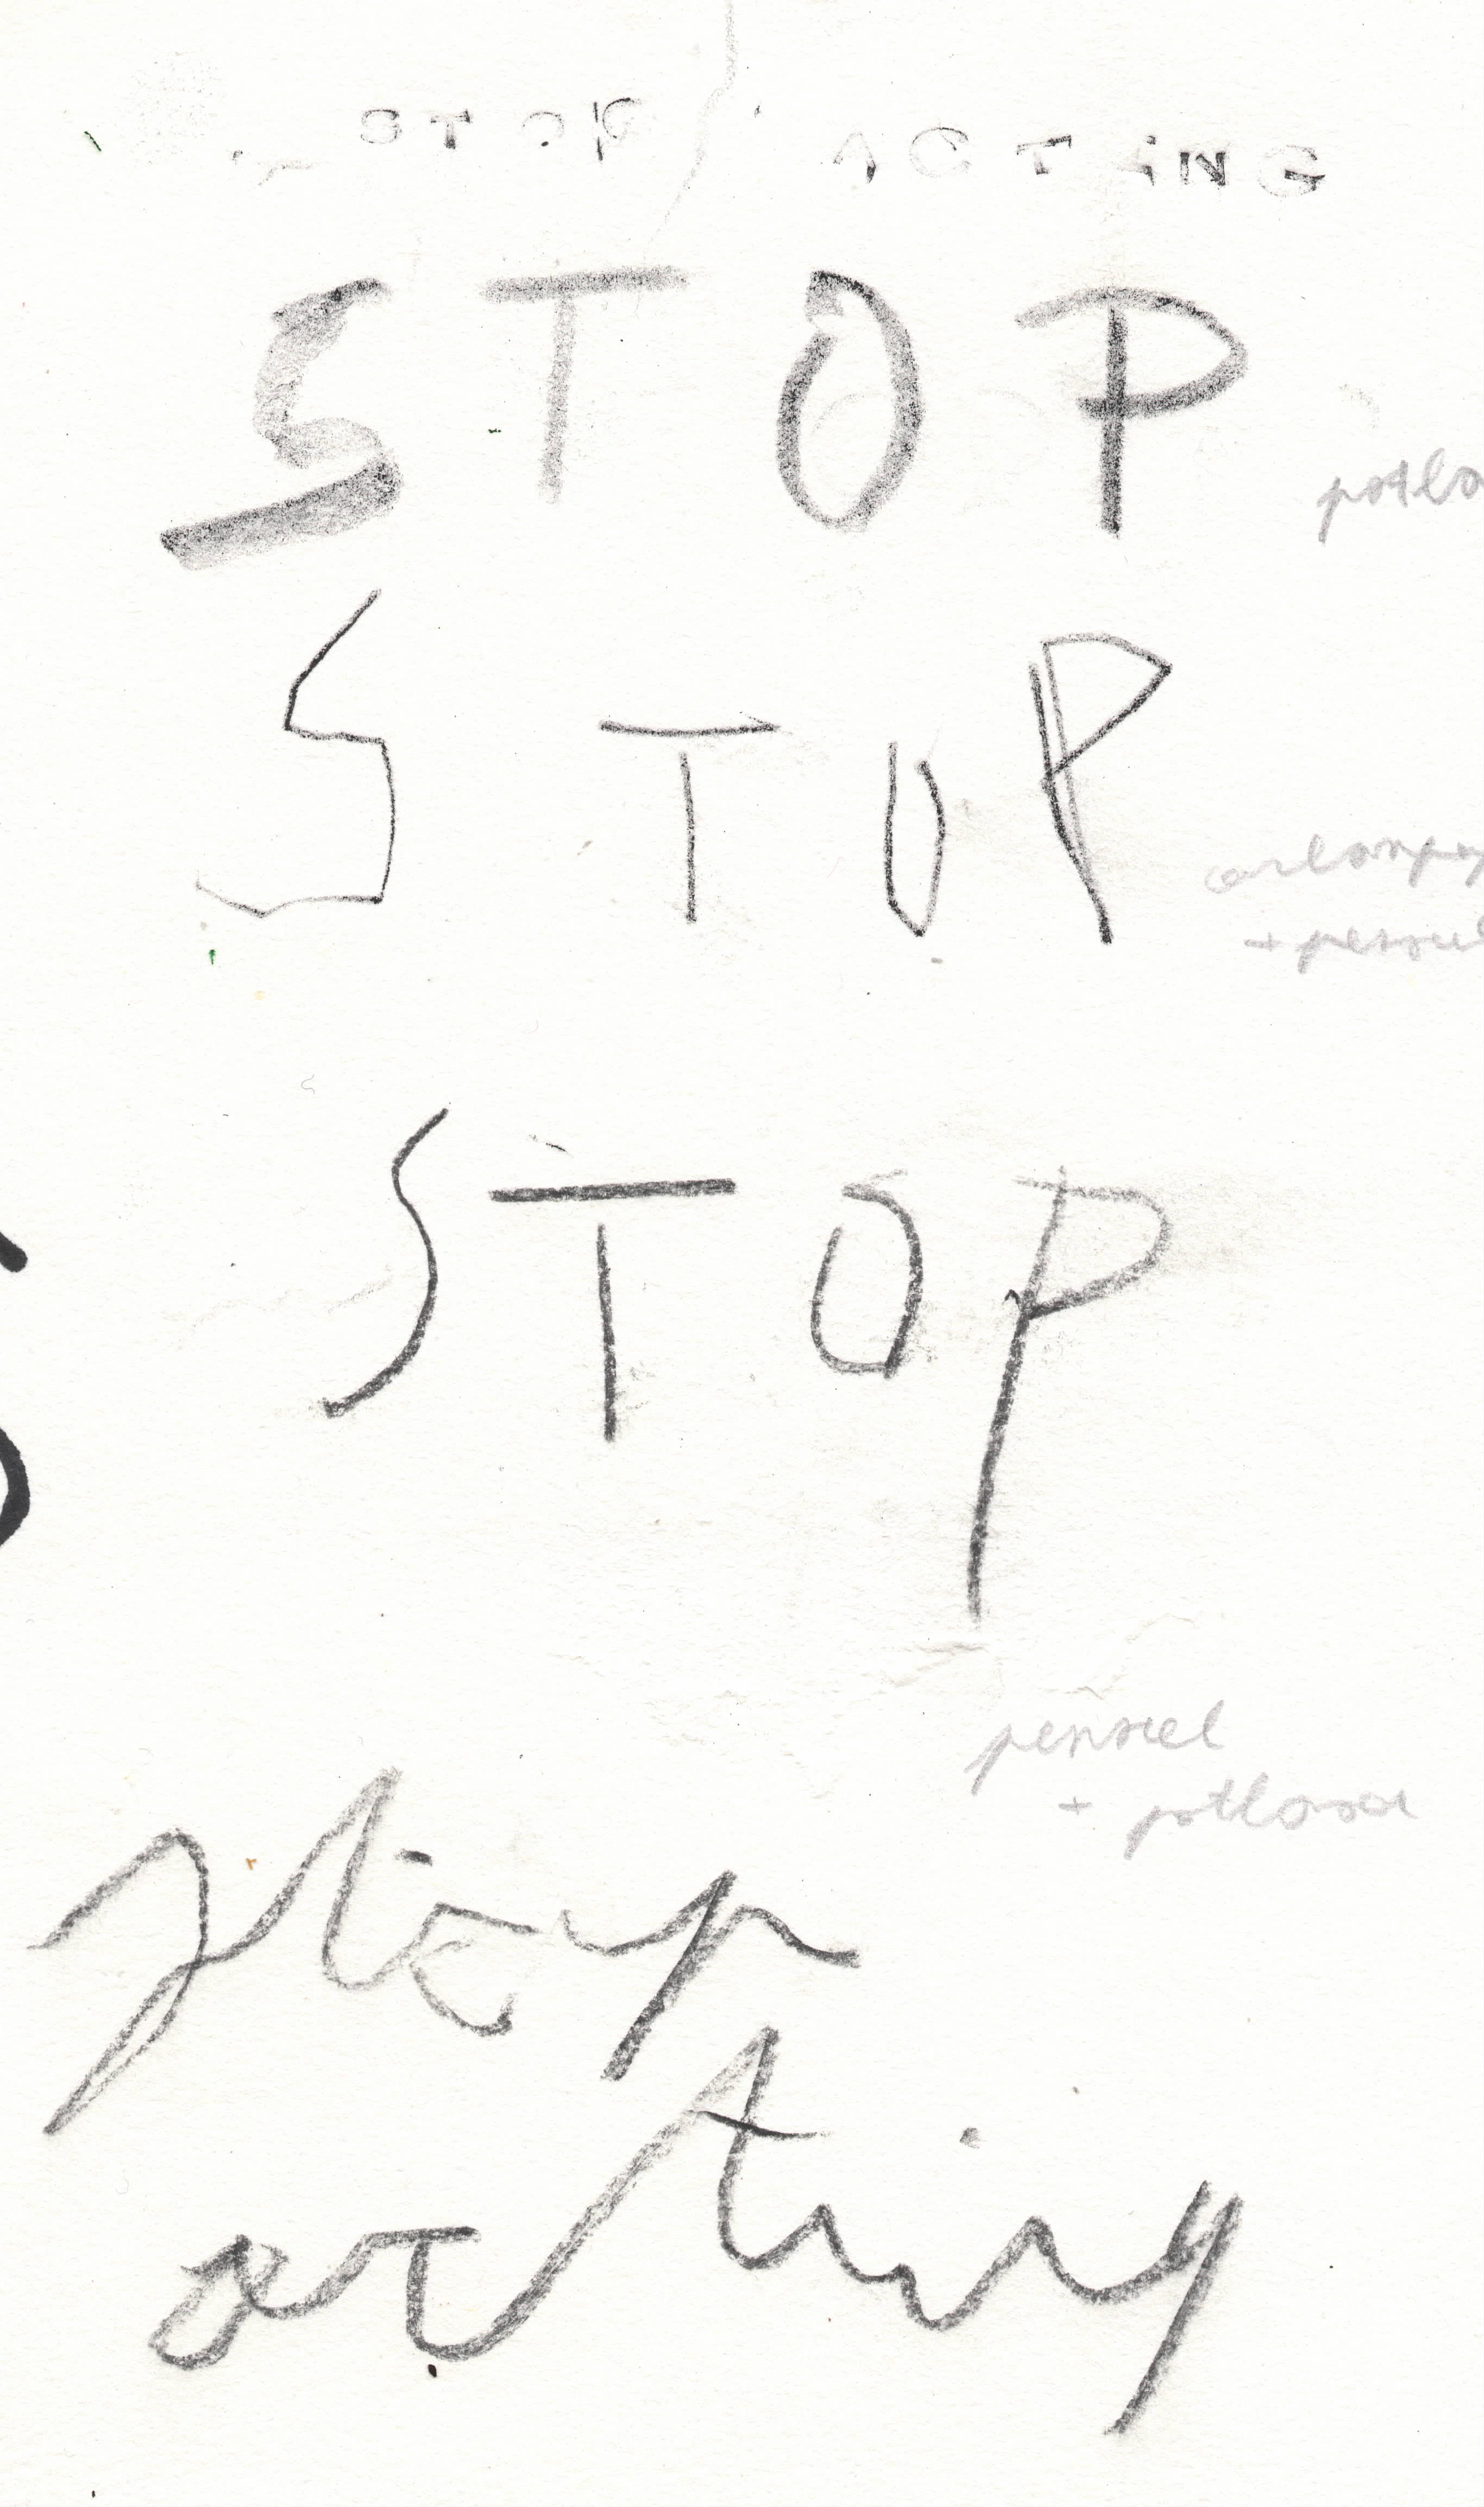 STOP ACTING
STOP
potlo
STOP
+ penseel
STOP
penseel
+ potlood
stop
acting